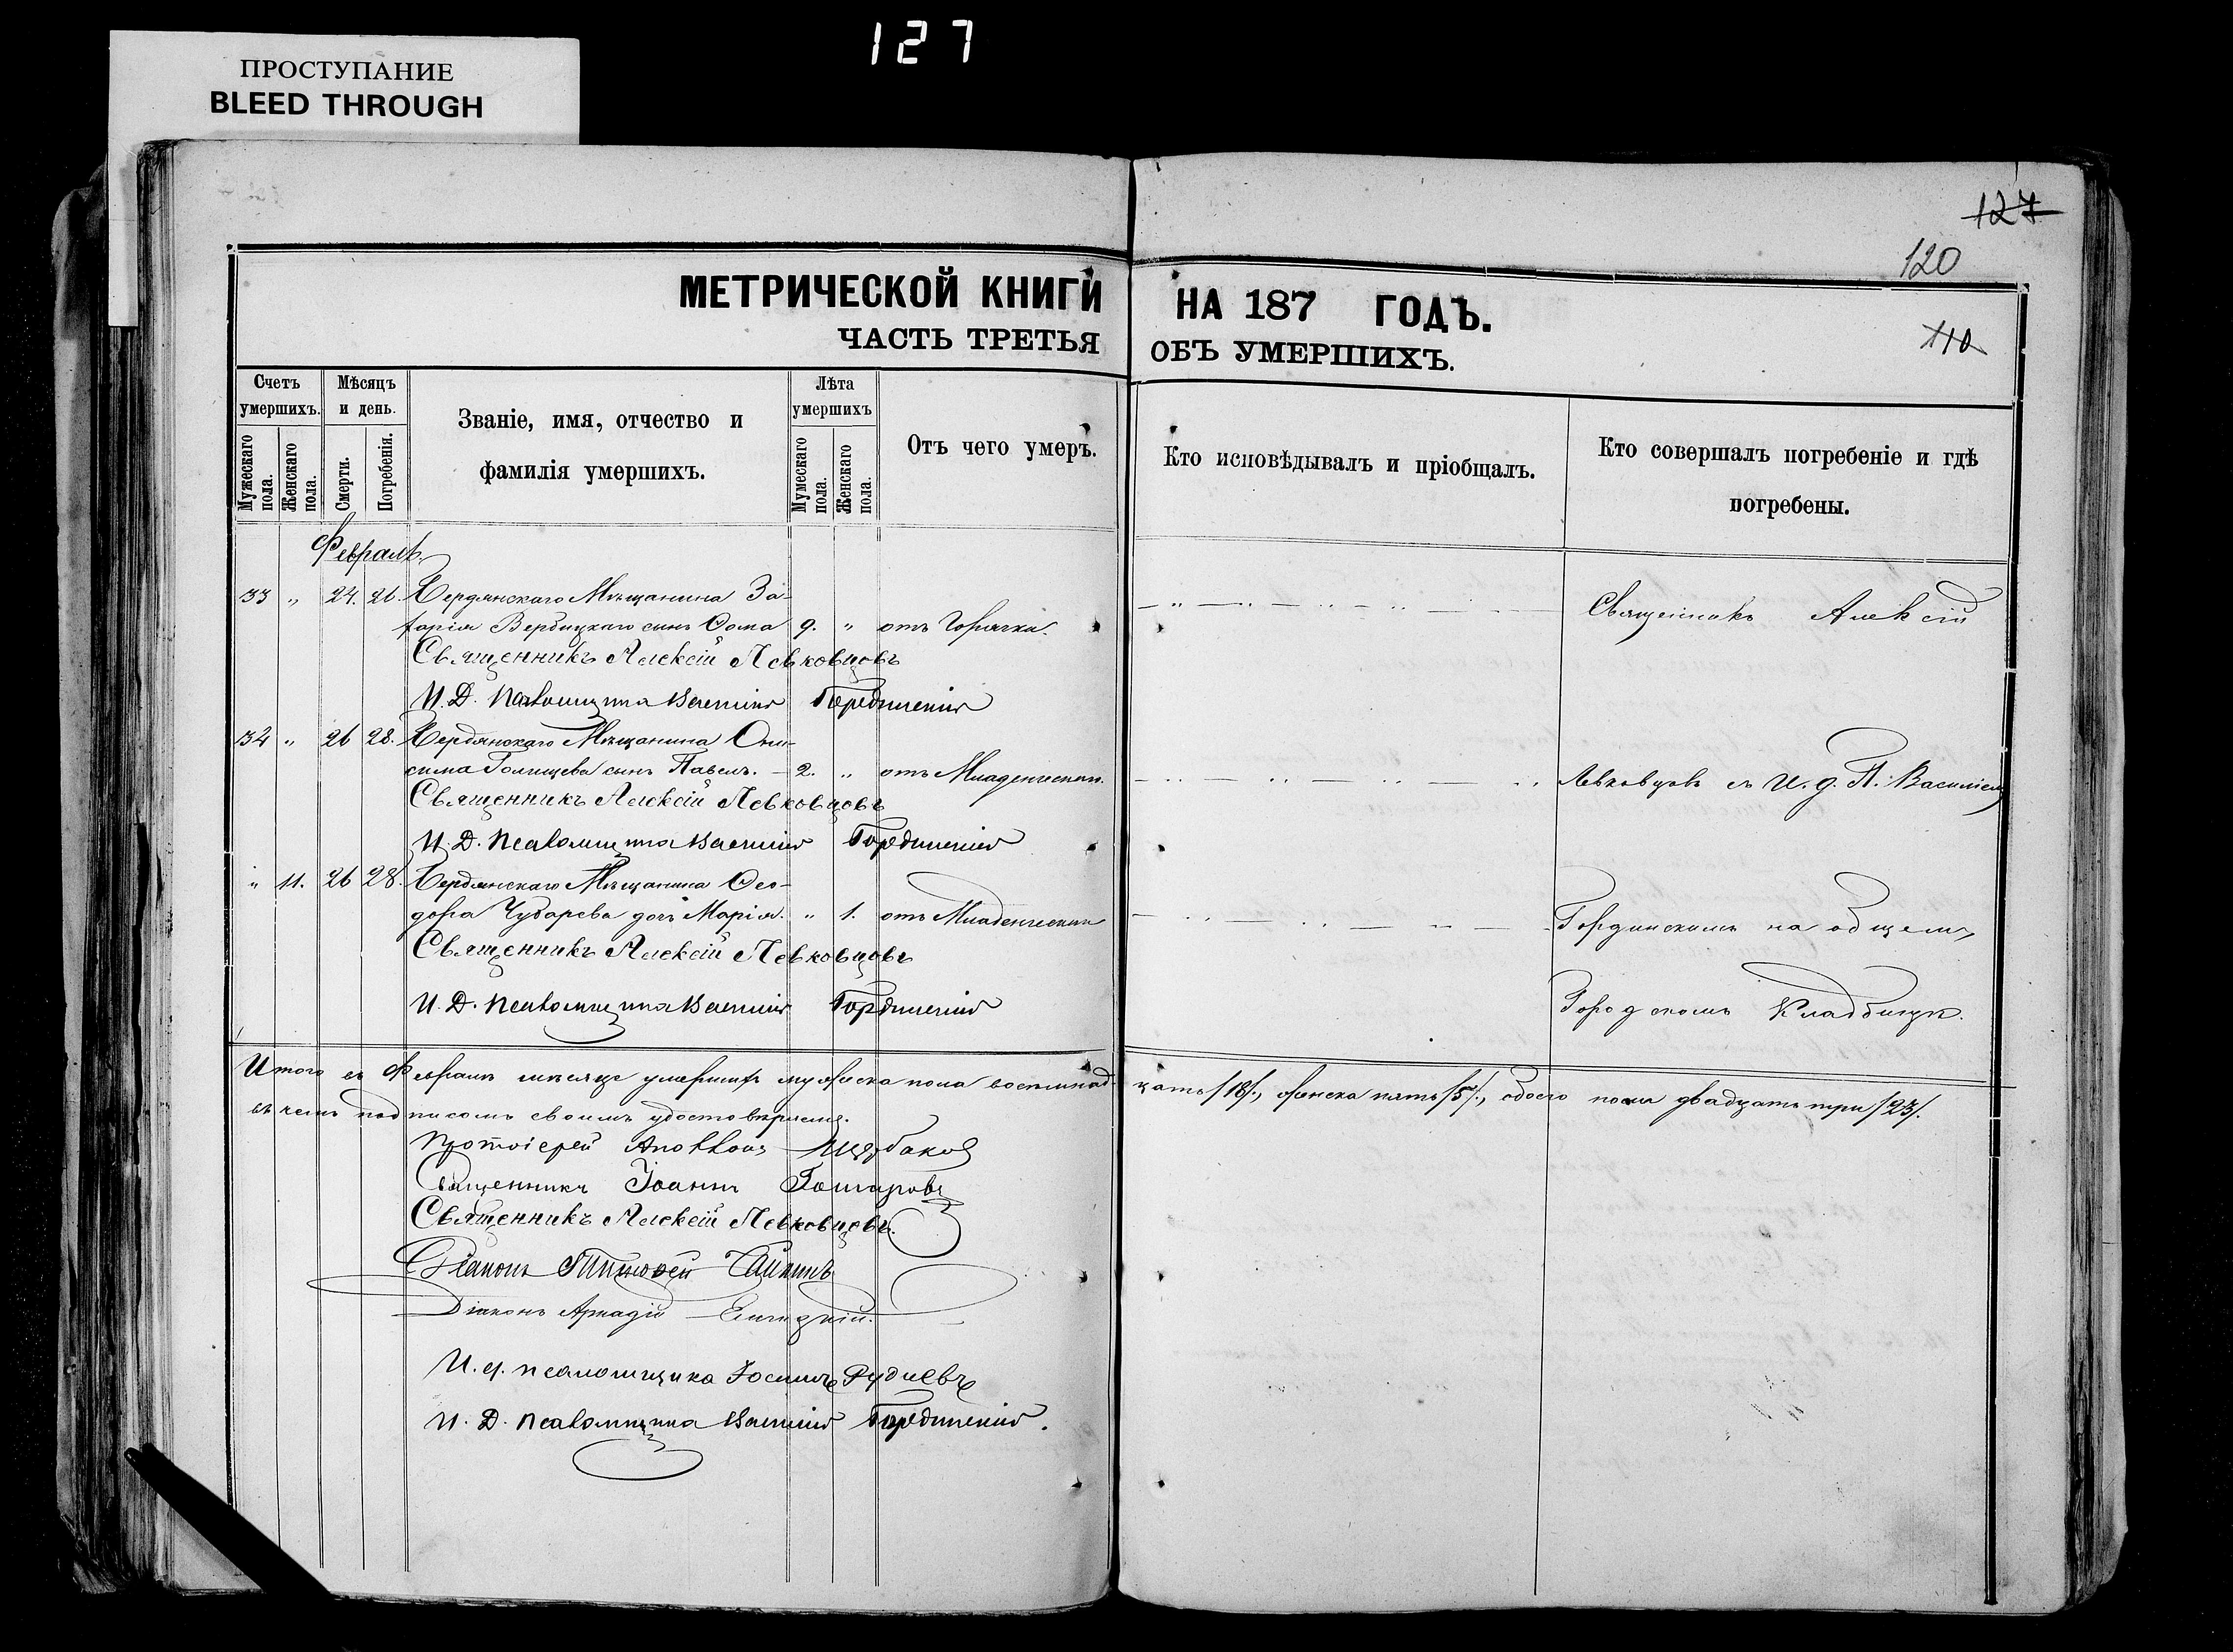 127
ПРОСТУПАНИЕ
BLEED THROUGH
127
120
110
МЕТРИЧЕСКОЙ КНИГИ НА 187 ГОДЪ.
ЧАСТЬ ТРЕТЬЯ ОБЪ УМЕРШИХЪ.
Счетъ умершихъ.
Мужескаго пола.
Женскаго пола.
Мѣсяцъ и день.
Смерти.
Погребенія.
Званіе, имя, отчество и
фамилія умершихъ.
Лѣта умершихъ
Мужескаго пола.
Женскаго пола.
Отъ чего умеръ.
Кто исповѣдывалъ и пріобщалъ.
Кто совершалъ погребеніе и гдѣ
погребены.
Февраль
33 " 24. 26. Бердянскаго Мѣщанина За-
харія Вербицкаго сынъ Ѳома 9. " отъ Горячки.
Священникъ Алексій
Священникъ Алексій Левковцовъ
И. Д. Псаломщика Василій
34 " 26 28. Бердянскаго Мѣщанина Они-
сима Голищева сынъ Павелъ. – 2. " отъ Младенческой.
Левковцовъ съ И. д. П. Василіем
Священникъ Алексій Левковцовъ
И. Д. Псаломщика Василій
" 11. 26 28. Бердянскаго Мѣщанина Ѳео-
дора Чубарева дочь Марія. " 1. отъ Младенческой
на общемъ
Священникъ Алексій Левковцовъ
И. Д. Псаломщика Василій
Городскомъ Кладбищѣ.
Итого въ Февралѣ мѣсяцѣ умершихъ мужеска пола восемнадцать /18/., женска пять /5/., обоего пола двадцать три /23/.
въ чемъ подписомъ своимъ удостовѣряемъ.
Протоіерей Аполлонъ
Священникъ Іоаннъ
Священникъ Алексій Левковцовъ.
Діаконъ Тимоѳей
Діаконъ Аркадій
И. д. псаломщика Іосифъ Рудиевъ
И. Д. Псаломщика Василій